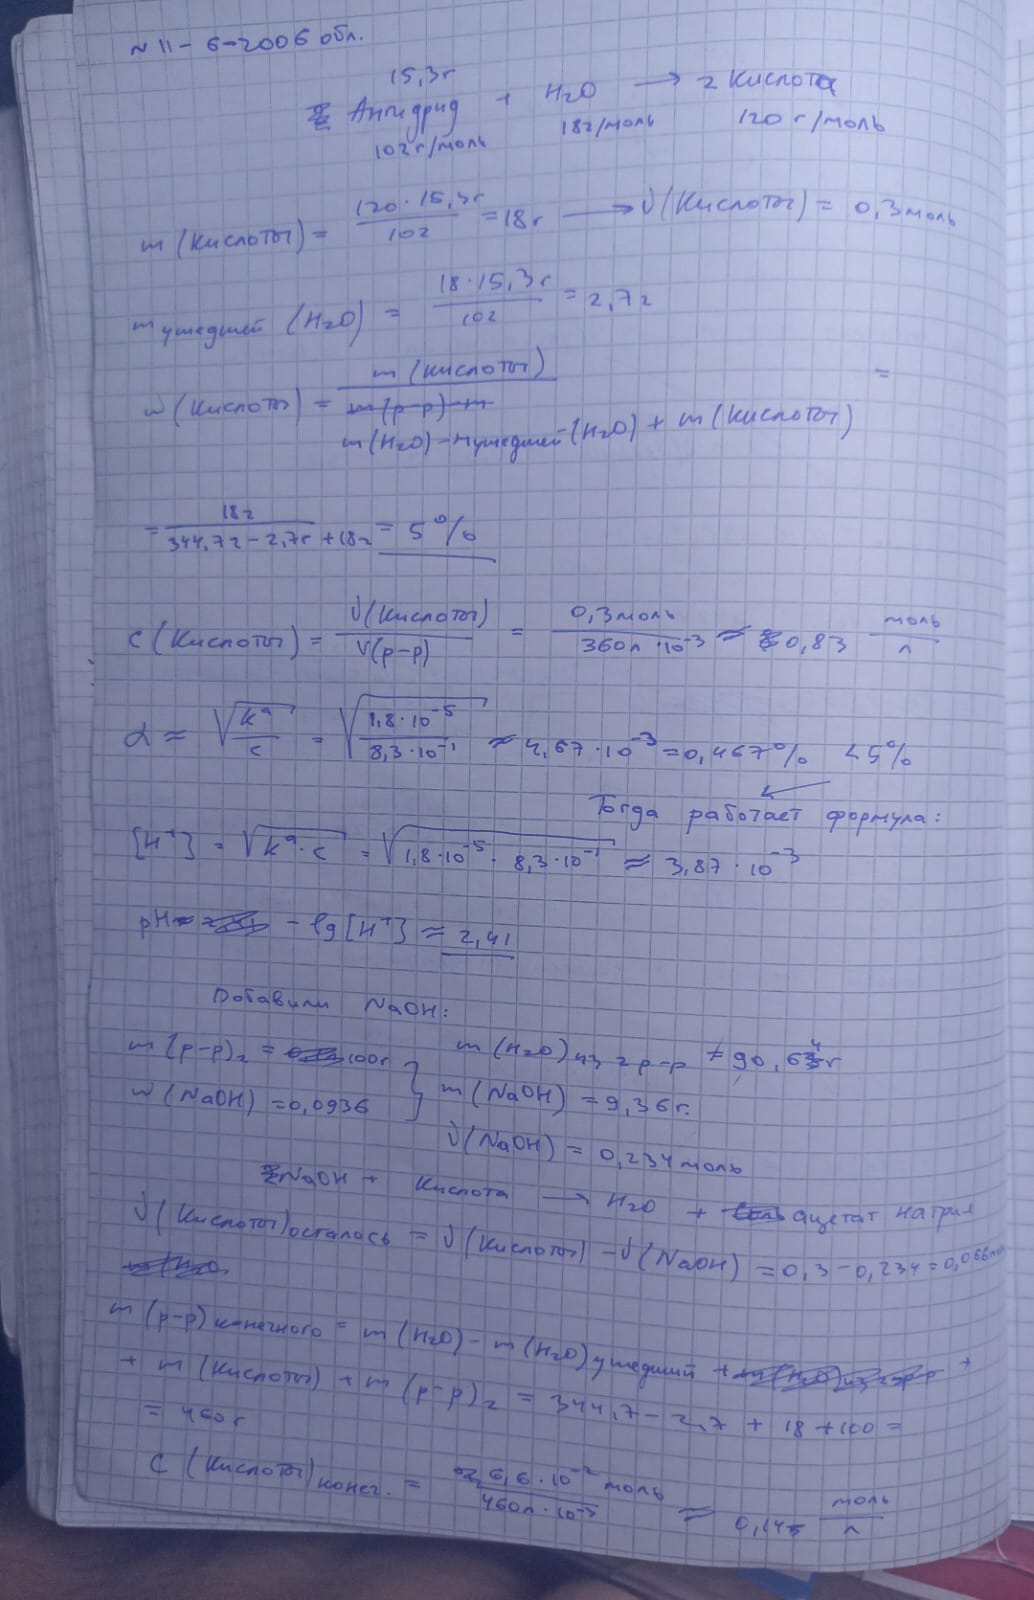 N 11-6-2006 обл.
15,3г
Ангидрид + H2O → 2 Кислота
102г/моль 18г/моль 120 г/моль
m (Кислоты) = 120 · 15,3г / 102 = 18г → ν(Кислоты) = 0,3моль
m ушедшей (H2O) = 18 · 15,3г / 102 = 2,7г
ω (Кислоты) = m (Кислоты) / m(H2O) - m ушедшей (H2O) + m (Кислоты) =
= 18г / 344,7г - 2,7г + 18г = 5%
c (Кислоты) = ν(Кислоты) / V(р-р) = 0,3моль / 360л · 10^-3 ≈ 0,83 моль / л
α ≈ √(Kа / c) = √(1,8 · 10^-5 / 8,3 · 10^-1) ≈ 4,67 · 10^-3 = 0,467% < 5%
Тогда работает формула:
[H+] = √(Kа · c) = √(1,8 · 10^-5 · 8,3 · 10^-1) ≈ 3,87 · 10^-3
pH = - lg [H+] ≈ 2,41
Добавили NaOH:
m (р-р)2 = 100г m (H2O) из 2 р-р = 90,64г
ω (NaOH) = 0,0936 } m (NaOH) = 9,36г.
ν (NaOH) = 0,234моль
NaOH + Кислота → H2O + ацетат натрия
ν (Кислоты) осталось = ν (Кислоты) - ν (NaOH) = 0,3 - 0,234 = 0,066моль
m (р-р) конечного = m (H2O) - m (H2O) ушедший +
+ m (Кислоты) + m (р-р)2 = 344,7 - 2,7 + 18 + 100 =
= 460г
c (Кислоты) конеч. = 6,6 · 10^-2 моль / 460л · 10^-3 ≈ 0,14 моль / л